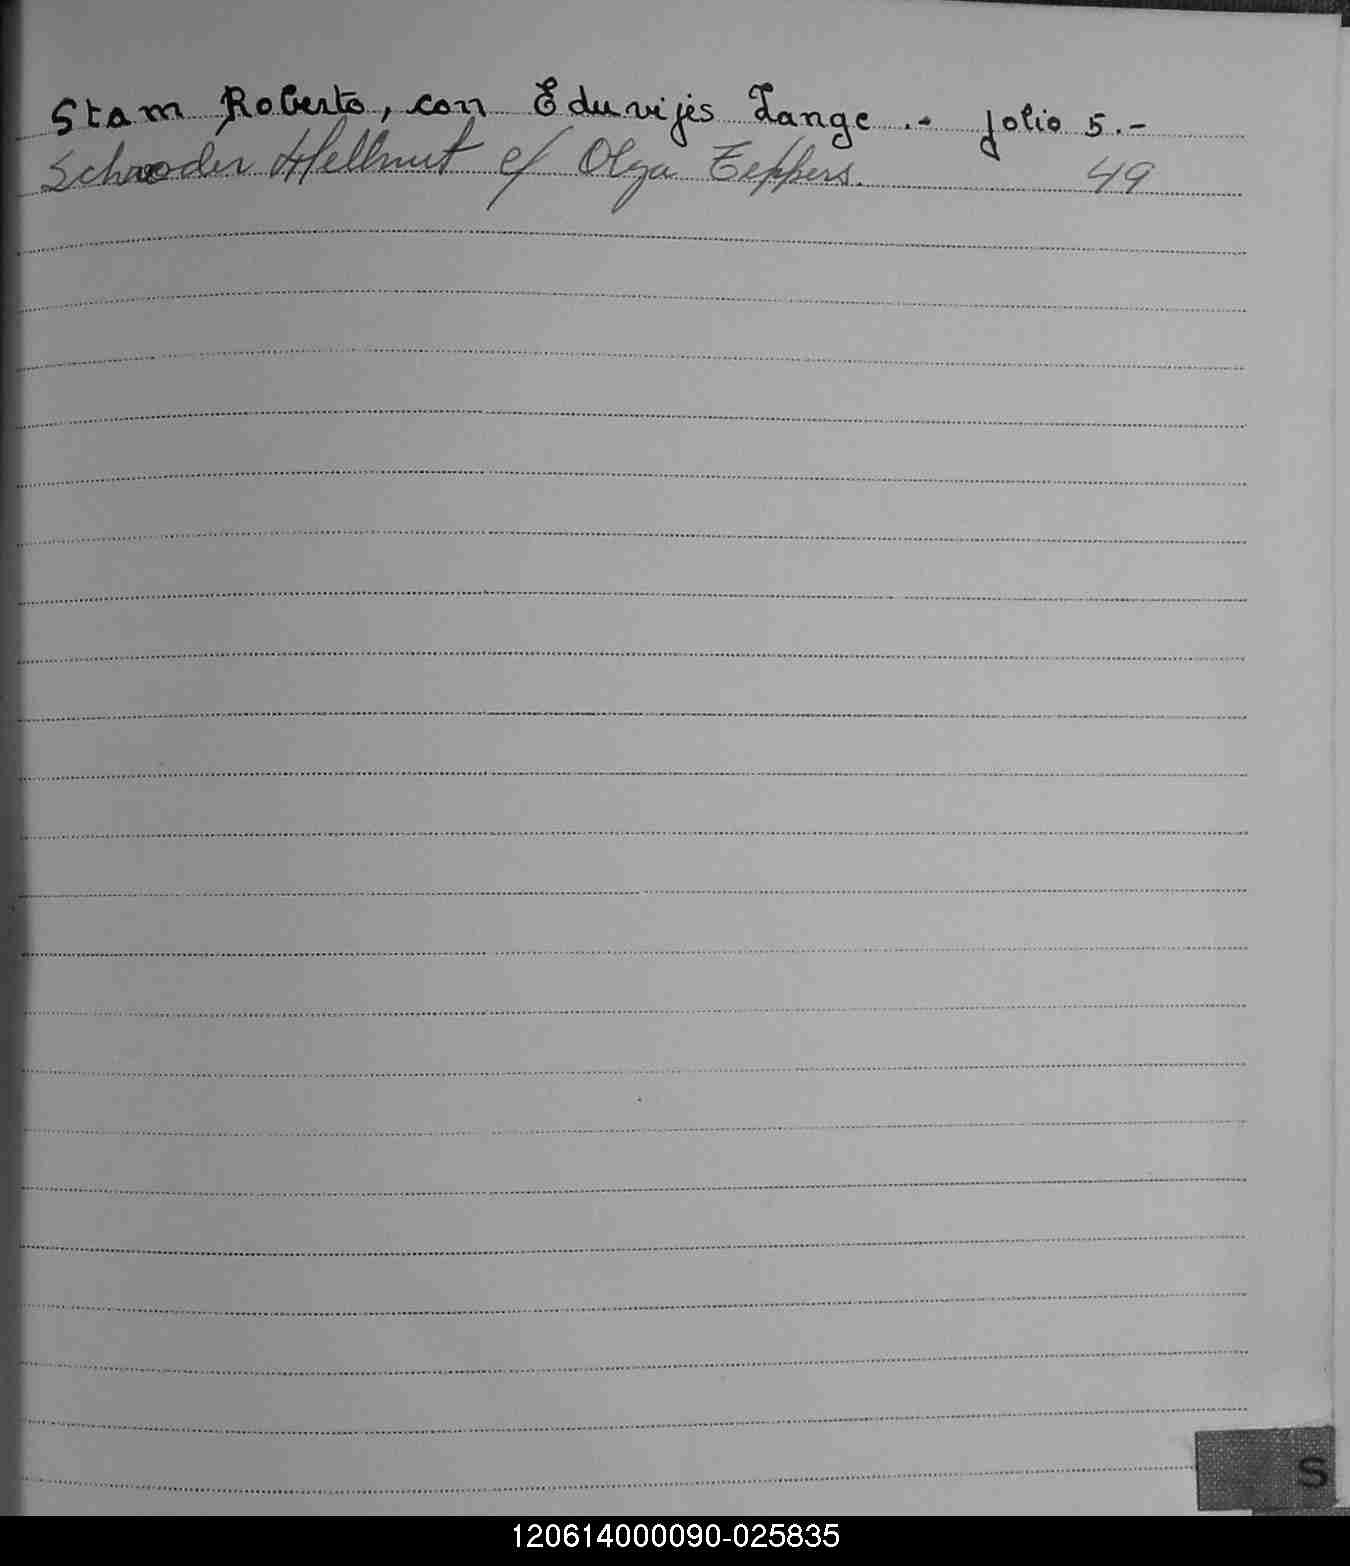 Stam Roberto, con Eduvijes Lange .- folio 5.-
Schroder Hellmut c/ Olga Eeppers. 49
S
120614000090-025835